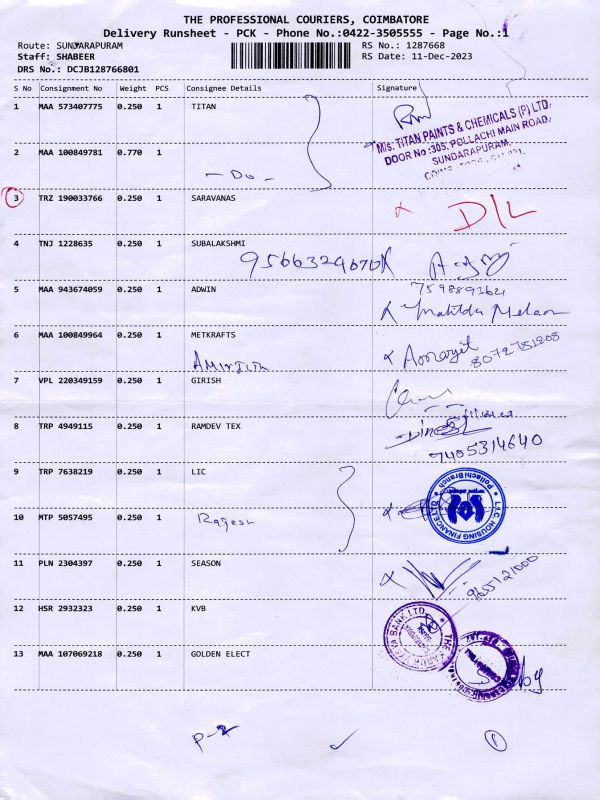 THE PROFESSIONAL COURIERS, COIMBATORE
Delivery Runsheet - PCK - Phone No.:0422-3505555 - Page No.:1
Route: SUNDARAPURAM
RS No.: 1287668
Staff: SHABEER
RS Date: 11-Dec-2023
DRS No.: DCJB128766801
S No Consignment No Weight PCS Consignee Details Signature
1 MAA 573407775 0.250 1 TITAN
M/s. TITAN PAINTS & CHEMICALS (P) LTD
DOOR No :305, POLLACHI MAIN ROAD,
SUNDARAPURAM,
2 MAA 100849781 0.770 1
- Do -
3 TRZ 190033766 0.250 1 SARAVANAS
D/L
4 TNJ 1228635 0.250 1 SUBALAKSHMI
5 MAA 943674059 0.250 1 ADWIN
7598893621
6 MAA 100849964 0.250 1 METKRAFTS
Amarjit
8072781208
7 VPL 220349159 0.250 1 GIRISH
8 TRP 4949115 0.250 1 RAMDEV TEX
Dinesh
7405314640
9 TRP 7638219 0.250 1 LIC
L.I.C HOUSING FINANCE LTD
Pollachi Branch
10 MTP 5057495 0.250 1
Ragesh
11 PLN 2304397 0.250 1 SEASON
9655121000
12 HSR 2932323 0.250 1 KVB
13 MAA 107069218 0.250 1 GOLDEN ELECT
P-2
1